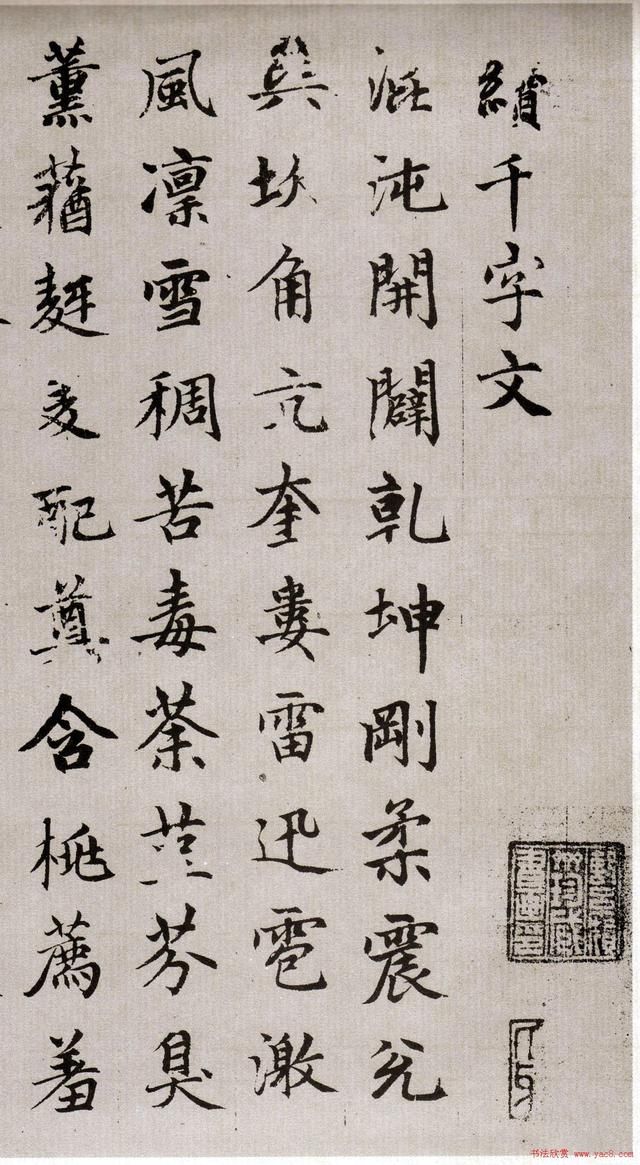 續千字文
混沌開闢乾坤剛柔震兌
巽坎角亢奎婁雷迅雹激
風凜雪稠苦毒荼堇芬臭
薰蕕麰麥配尊含桃薦羞
书法欣赏 www.yac8.com